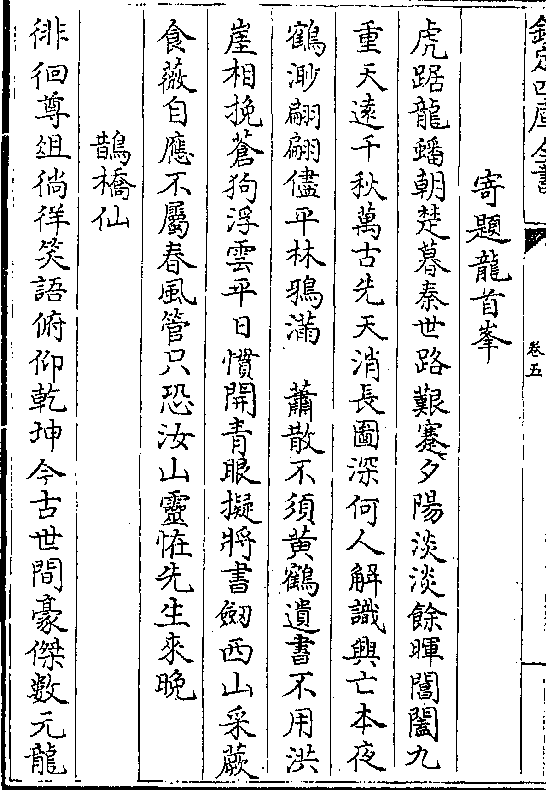 欽定四庫全書
卷五
寄題龍首峯
虎踞龍蟠朝楚暮秦世路艱蹇夕陽淡淡餘暉閶闔九
重天遠千秋萬古先天消長圖深何人解識興亡本夜
鶴渺翩翩儘平林鴉滿　蕭散不須黄鶴遺書不用洪
崖相挽蒼狗浮雲平日慣開青眼擬將書劒西山采蕨
食薇自應不屬春風管只恐汝山靈恠先生來晚
鵲橋仙
徘徊尊俎徜徉笑語俯仰乾坤今古世間豪傑數元龍